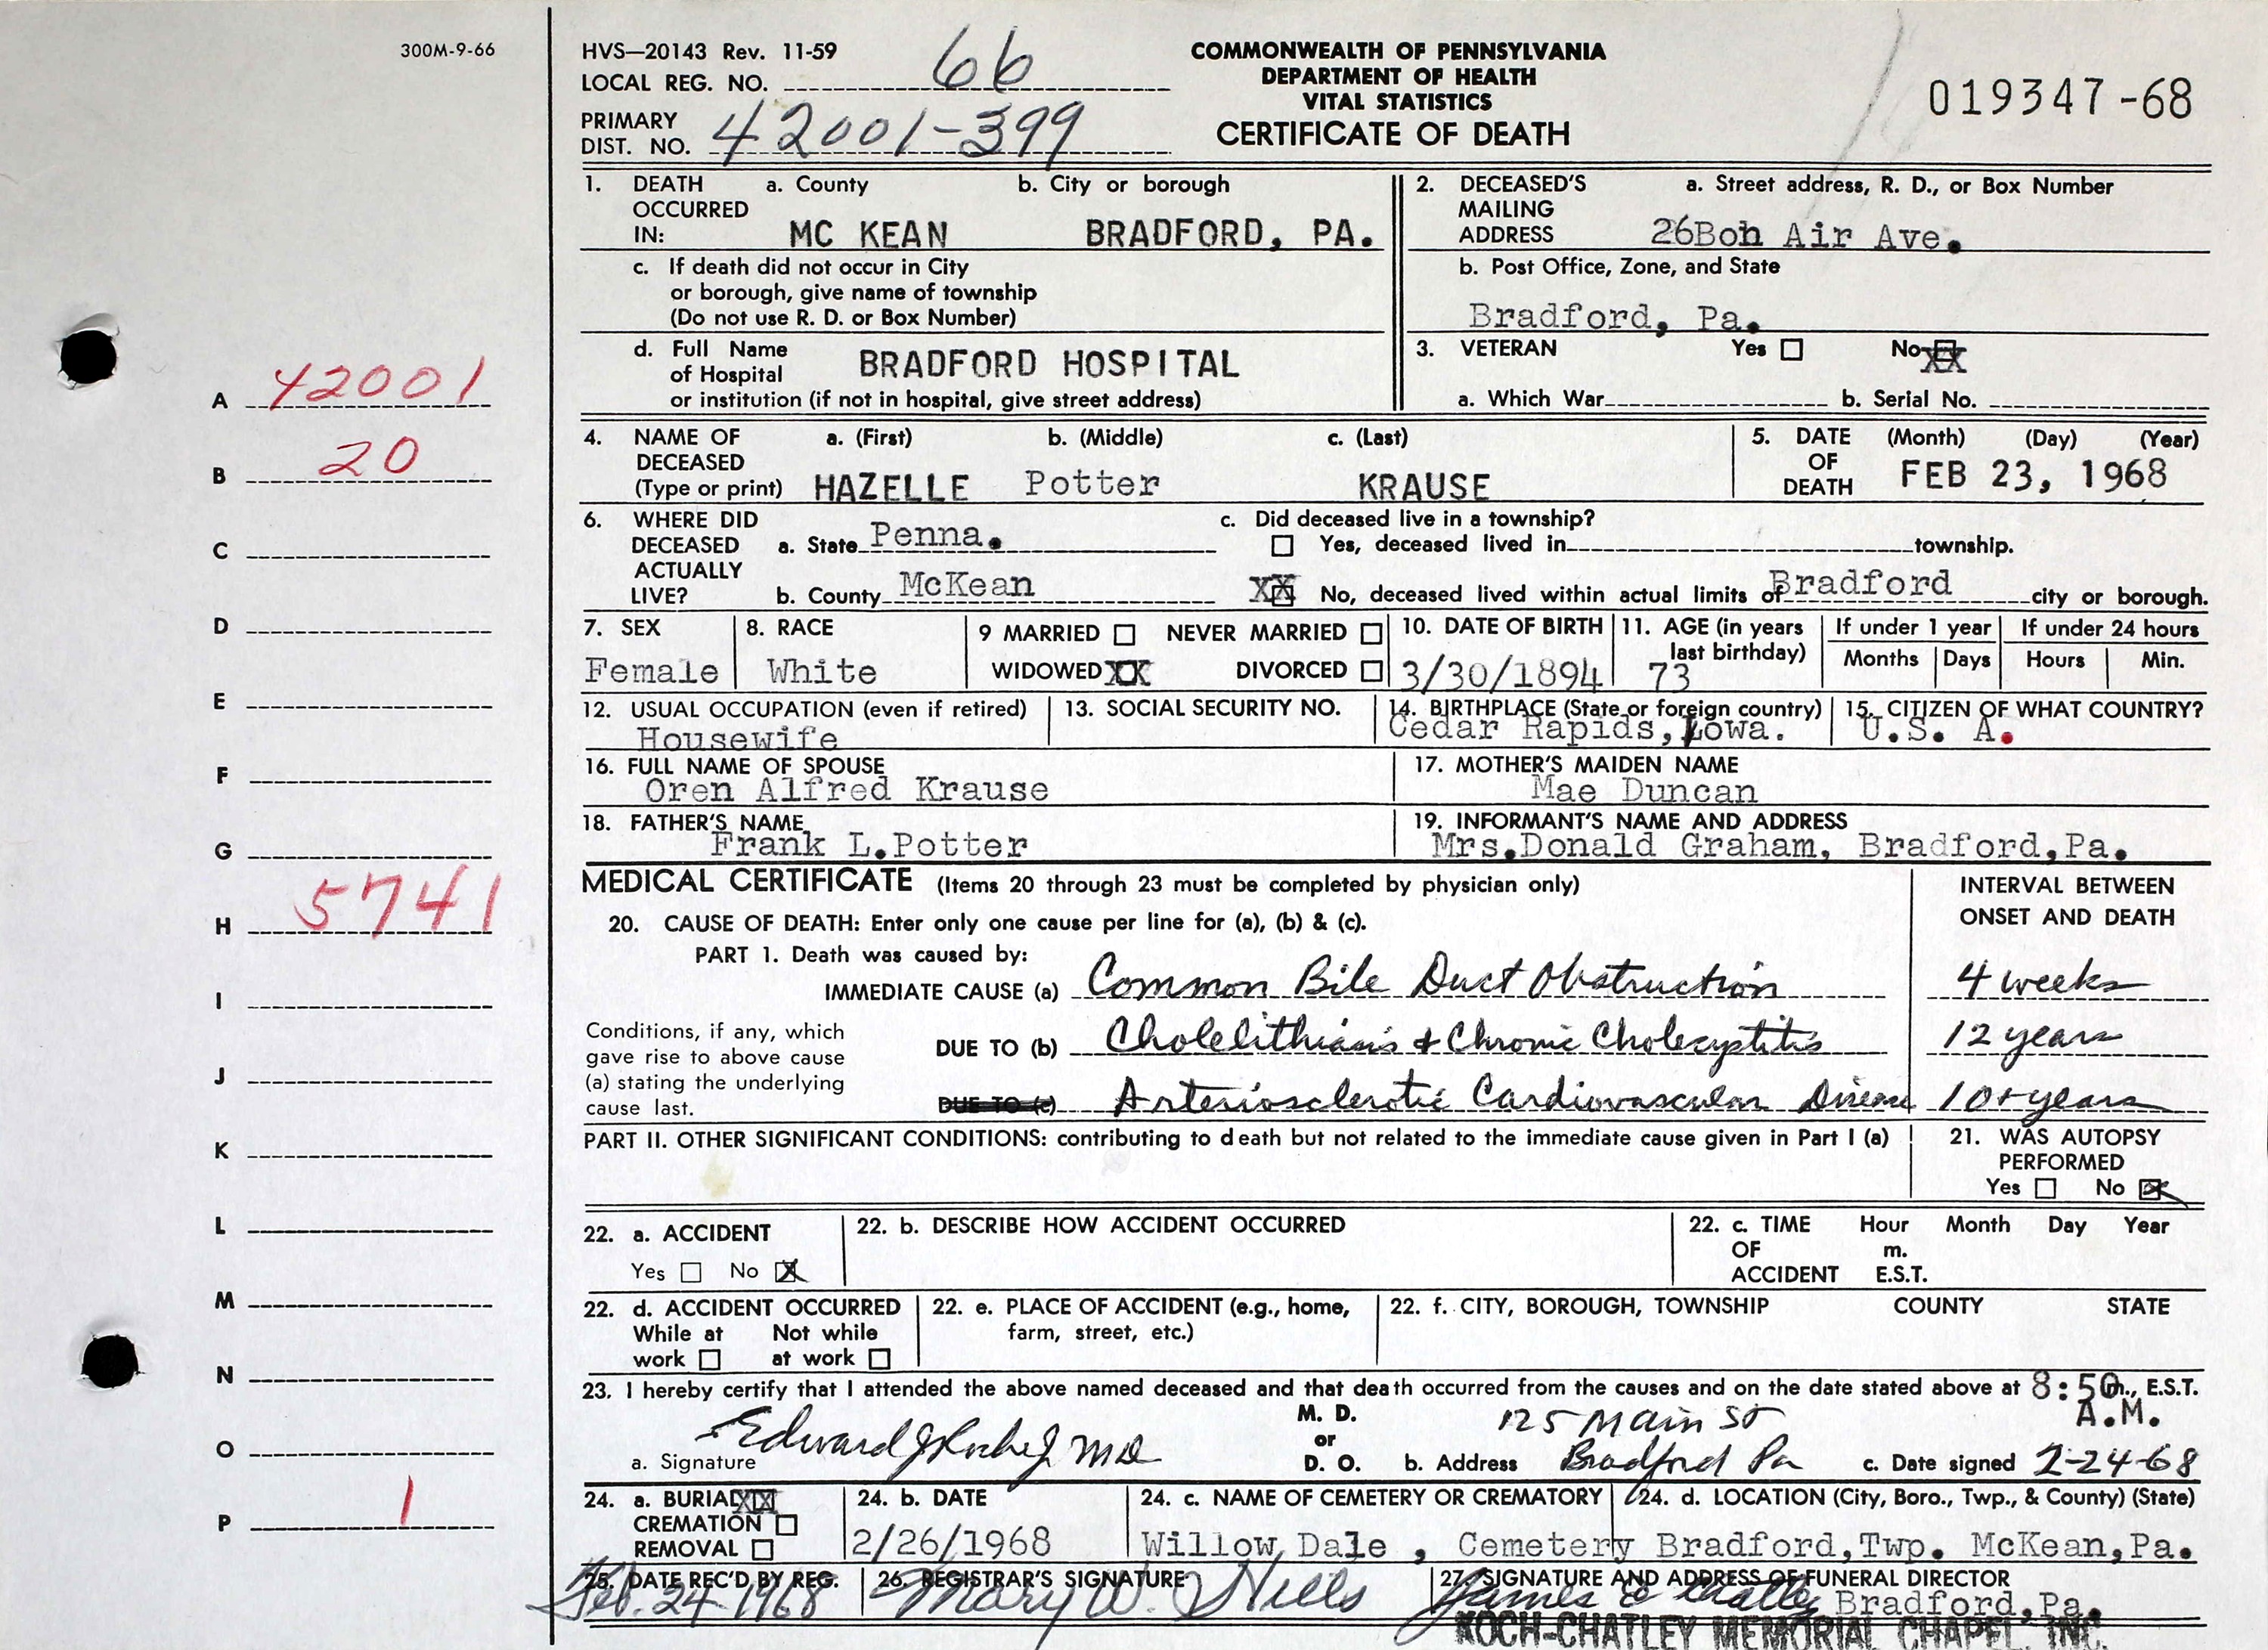 300M-9-66
HVS—20143 Rev. 11-59
LOCAL REG. NO. 66
PRIMARY
DIST. NO. 42001-399
COMMONWEALTH OF PENNSYLVANIA
DEPARTMENT OF HEALTH
VITAL STATISTICS
CERTIFICATE OF DEATH
019347-68
1. DEATH OCCURRED IN: a. County b. City or borough
MC KEAN BRADFORD, PA.
c. If death did not occur in City
or borough, give name of township
(Do not use R. D. or Box Number)
d. Full Name
of Hospital BRADFORD HOSPITAL
or institution (if not in hospital, give street address)
2. DECEASED'S MAILING ADDRESS a. Street address, R. D., or Box Number
26Bon Air Ave.
b. Post Office, Zone, and State
Bradford, Pa.
3. VETERAN Yes No XX
a. Which War b. Serial No.
4. NAME OF DECEASED (Type or print) a. (First) b. (Middle) c. (Last)
HAZELLE Potter KRAUSE
5. DATE OF DEATH (Month) (Day) (Year)
FEB 23, 1968
6. WHERE DID DECEASED ACTUALLY LIVE?
a. State Penna.
b. County McKean
c. Did deceased live in a township?
Yes, deceased lived in township.
XX No, deceased lived within actual limits of Bradford city or borough.
7. SEX
Female
8. RACE
White
9 MARRIED NEVER MARRIED
WIDOWED XX DIVORCED
10. DATE OF BIRTH
3/30/1894
11. AGE (in years last birthday)
73
If under 1 year
Months Days
If under 24 hours
Hours Min.
12. USUAL OCCUPATION (even if retired)
Housewife
13. SOCIAL SECURITY NO.
14. BIRTHPLACE (State or foreign country)
Cedar Rapids, Iowa.
15. CITIZEN OF WHAT COUNTRY?
U.S. A.
16. FULL NAME OF SPOUSE
Oren Alfred Krause
17. MOTHER'S MAIDEN NAME
Mae Duncan
18. FATHER'S NAME
Frank L.Potter
19. INFORMANT'S NAME AND ADDRESS
Mrs.Donald Graham, Bradford,Pa.
MEDICAL CERTIFICATE (Items 20 through 23 must be completed by physician only)
INTERVAL BETWEEN
ONSET AND DEATH
20. CAUSE OF DEATH: Enter only one cause per line for (a), (b) & (c).
PART 1. Death was caused by:
IMMEDIATE CAUSE (a) Common Bile Duct Obstruction 4 weeks
Conditions, if any, which
gave rise to above cause
(a) stating the underlying
cause last.
DUE TO (b) Cholelithiasis & Chronic Cholecystitis 12 years
DUE TO (c) Arteriosclerotic Cardiovascular Disease 10+ years
PART II. OTHER SIGNIFICANT CONDITIONS: contributing to death but not related to the immediate cause given in Part I (a)
21. WAS AUTOPSY
PERFORMED
Yes No X
22. a. ACCIDENT
Yes No X
22. b. DESCRIBE HOW ACCIDENT OCCURRED
22. c. TIME OF ACCIDENT Hour Month Day Year
m.
E.S.T.
22. d. ACCIDENT OCCURRED
While at work Not while at work
22. e. PLACE OF ACCIDENT (e.g., home,
farm, street, etc.)
22. f. CITY, BOROUGH, TOWNSHIP COUNTY STATE
23. I hereby certify that I attended the above named deceased and that death occurred from the causes and on the date stated above at 8:50 m., E.S.T.
A.M.
a. Signature Edward J MD
M. D.
or
D. O.
b. Address 125 Main St
Bradford Pa
c. Date signed 2-24-68
24. a. BURIAL XX
CREMATION
REMOVAL
24. b. DATE
2/26/1968
24. c. NAME OF CEMETERY OR CREMATORY
24. d. LOCATION (City, Boro., Twp., & County) (State)
Willow Dale , Cemetery Bradford,Twp. McKean,Pa.
25. DATE REC'D BY REG.
Feb. 24 1968
26. REGISTRAR'S SIGNATURE
Mary W. Hills
27. SIGNATURE AND ADDRESS OF FUNERAL DIRECTOR
James E Chatley Bradford,Pa.
KOCH-CHATLEY MEMORIAL CHAPEL, INC.
A 42001
B 20
C
D
E
F
G
H 5741
I
J
K
L
M
N
O
P 1